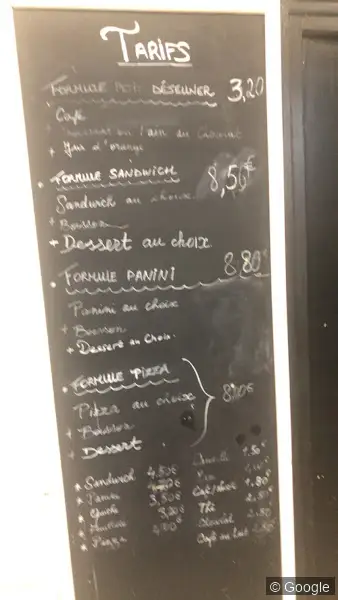 TARIFS
FORMULE PETIT DÉJEUNER 3,20
Café
+ Croissant ou Pain au Chocolat
+ Jus d'orange
• FORMULE SANDWICH 8,50€
Sandwich au choix
+ Boisson
+ Dessert au choix
• FORMULE PANINI 8.80€
Panini au choix
+ Boisson
+ Dessert au Choix.
• FORMULE PIZZA
Pizza au choix
+ Boisson
+ Dessert
Sandwich 4,50€
Panini
Quiche 3,50€
Pizza
1.50€
Café
1.80€
Thé
Chocolat
Café au lait
© Google